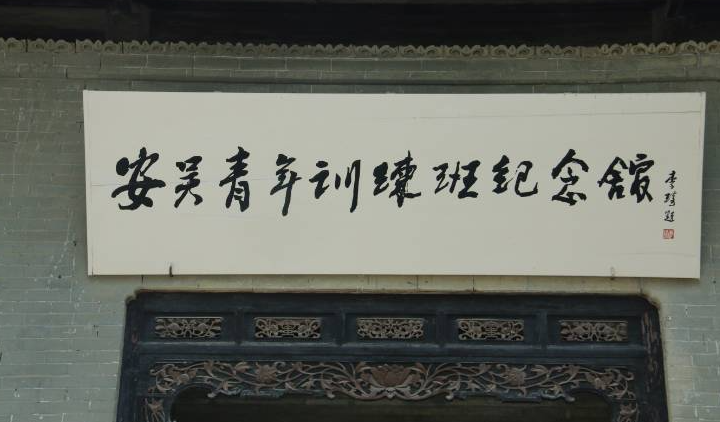 安吴青年训练班纪念馆
李琦题